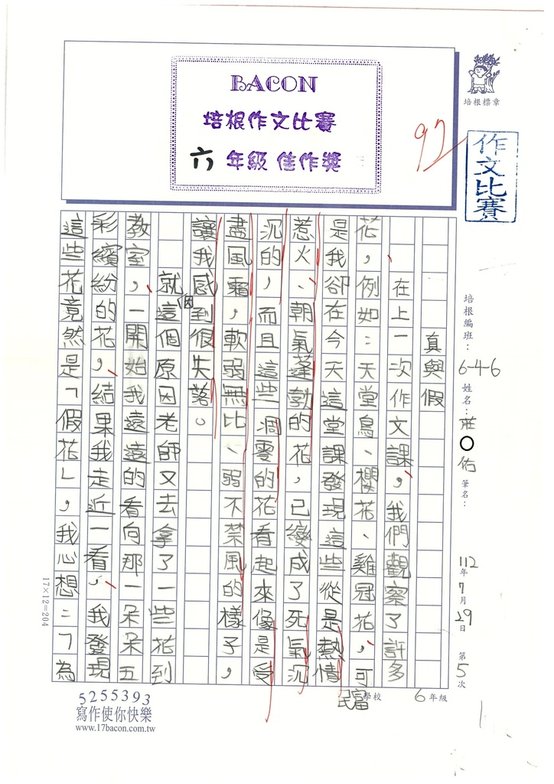 BACON
培根作文比賽
六年級 佳作獎
97
培根標章
作文比賽
培根編班：6-46 姓名：莊〇佑 筆名：
112年7月29日 第5次
民富 學校 6年級
真與假
在上一次作文課，我們觀察了許多
花，例如：天堂鳥、櫻花、雞冠花，可
是我卻在今天這堂課發現這些從是熱情
惹火、朝氣蓬勃的花，已變成了死氣沉
沉的，而且這些凋零的花看起來像是受
盡風霜，軟弱無比、弱不禁風的樣子，
讓我感到很失落。
就這個原因老師又去拿了一些花到
教室，一開始我遠遠的看向那一朵朵五
彩繽紛的花，結果我走近一看，我發現
這些花竟然是「假花」，我心想：「為
17×12=204
5255393
寫作使你快樂
www.17bacon.com.tw